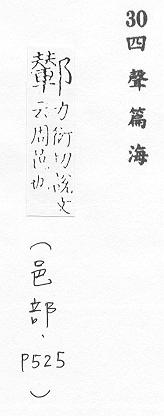 30 四聲篇海
鄻力衍切說文
云周邑也
（邑部，P525）